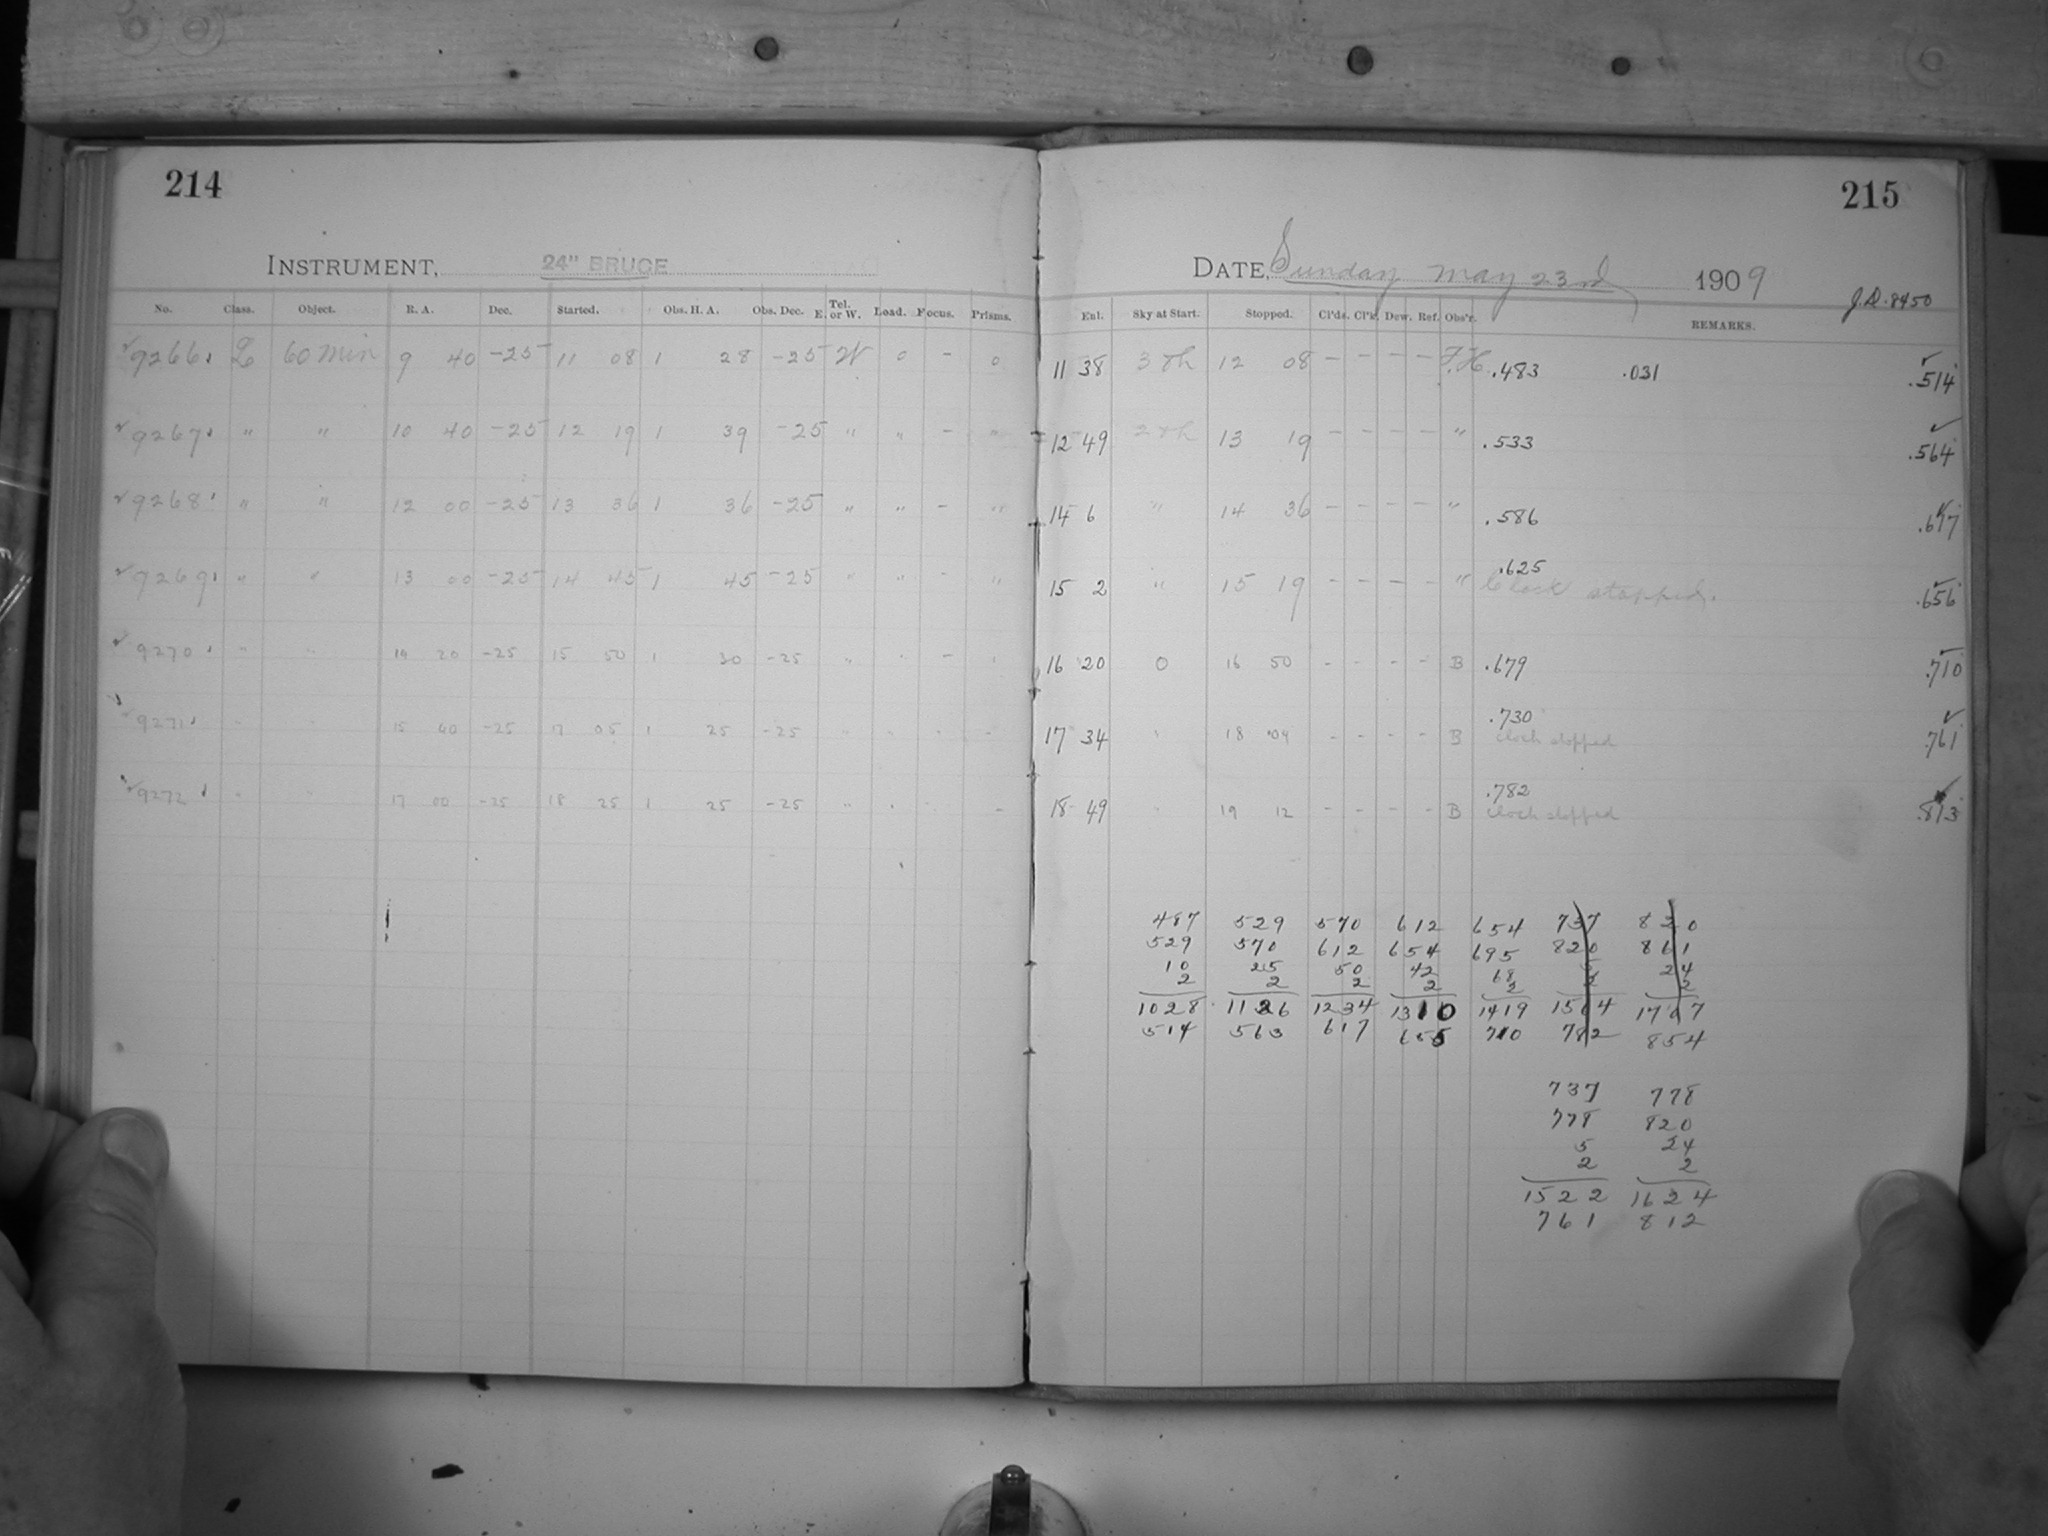 214
INSTRUMENT, 24" BRUCE
No. Class. Object. R. A. Dec. Started. Obs. H. A. Obs. Dec. Tel. E. or W. Load. Focus. Prisms.
9266 L 60 Min 9 40 -25 11 08 1 28 -25 W 0 - 0
9267 " " 10 40 -25 12 19 1 39 -25 " " - "
9268 " " 12 00 -25 13 36 1 36 -25 " " - "
9269 " " 13 00 -25 14 45 1 45 -25 " " - "
9270 " " 14 20 -25 15 50 1 30 -25 " " - "
9271 " " 15 40 -25 17 05 1 25 -25 " " - -
9272 " " 17 00 -25 18 25 1 25 -25 " " -
215
DATE, Sunday May 23rd 1909
J.D. 8450
Enl. Sky at Start. Stopped. Cl'ds. Cl'k. Dew. Ref. Obs'r. REMARKS.
11 38 12 08 - - - - F.H. .483 .031 .514
12 49 13 19 - - - - " .533 .564
14 6 " 14 36 - - - - " .586 .617
.625
15 2 " 15 19 - - - - " Clock stopped. .656
16 20 0 16 50 - - - - B .679 .710
.730
17 34 " 18 04 - - - - B Clock stopped .761
.782
18 49 " 19 12 - - - - B Clock stopped .813
487 529 570 612 654 737 820
529 570 612 654 695 820 861
10 25 50 42 68 5 24
2 2 2 2 2 2 2
1028 1126 1234 1310 1419 1564 1707
514 563 617 655 710 782 854
737 778
778 820
5 24
2 2
1522 1624
761 812